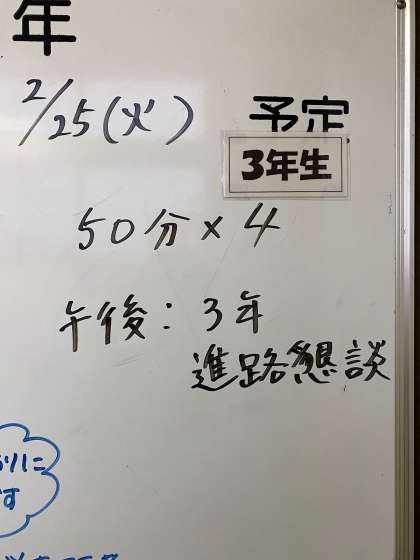 年
2/25(火) 予定
3年生
50分×4
午後：3年
進路懇談
りに
す